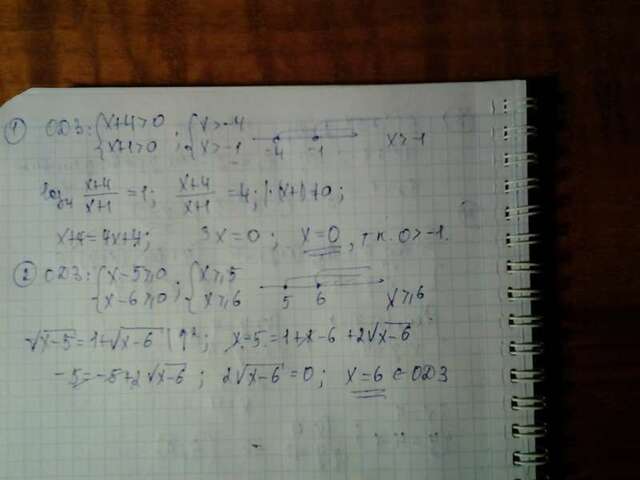 ① ОДЗ: {x+4>0 {x+1>0 ; {x>-4 {x>-1 -4 -1 x>-1
log₄ (x+4)/(x+1) = 1; (x+4)/(x+1) = 4; |·(x+1)≠0;
x+4=4x+4; 3x=0; x=0, т.к. 0>-1.
② ОДЗ: {x-5≥0 {x-6≥0 ; {x≥5 {x≥6 5 6 x≥6
√(x-5)=1+√(x-6) |↑²; x-5=1+x-6+2√(x-6)
-5=-5+2√(x-6); 2√(x-6)=0; x=6 ∈ ОДЗ